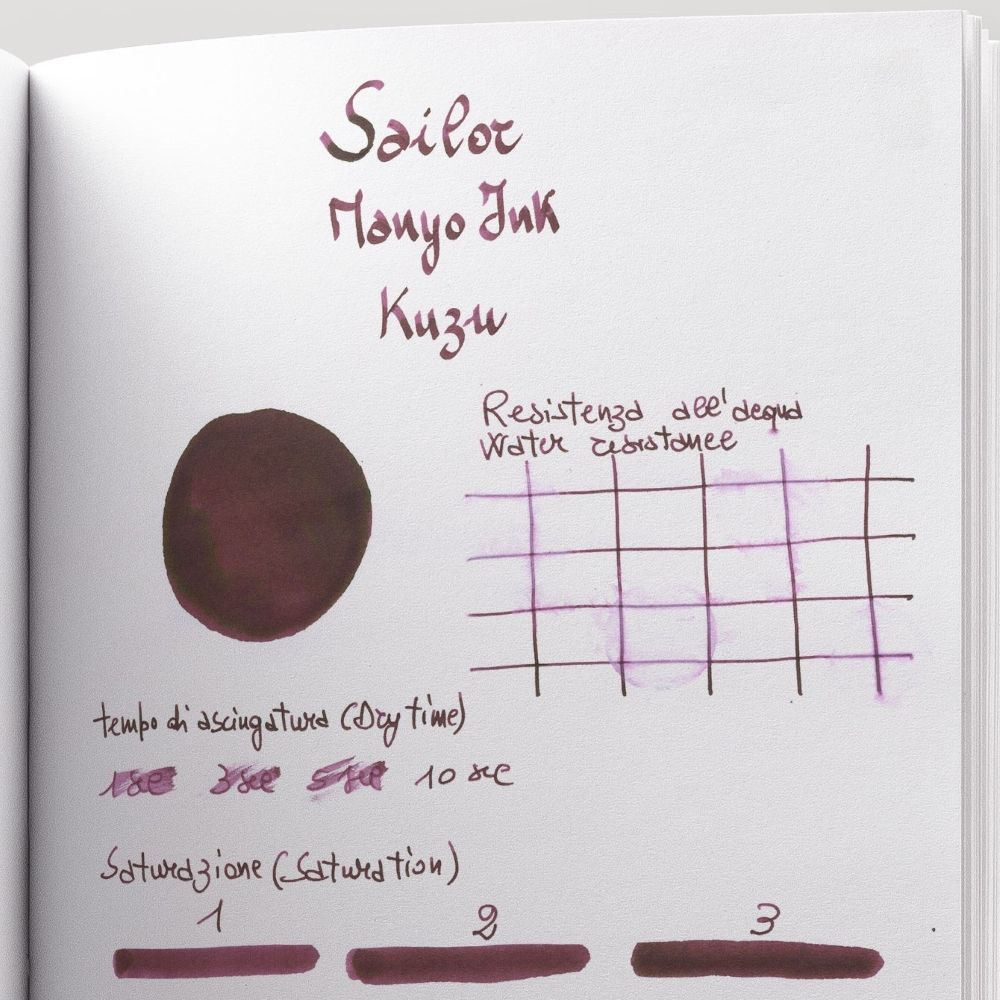 Sailor
Manyo Ink
Kuzu
Resistenza all'acqua
Water resistance
tempo di asciugatura (Dry time)
1 sec 3 sec 5 sec 10 sec
Saturazione (Saturation)
1 2 3